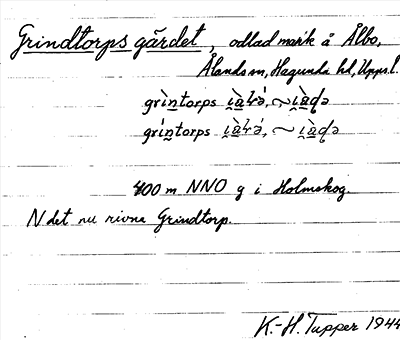 Grindtorps gärdet, odlad mark å Ålbo,
Ålands sn, Hagunda hd, Upps.l.
grìntorps
gríntorps
400 m NNO g i Holmskog.
N det nu rivna Grindtorp.
K.-H. Tupper 1944